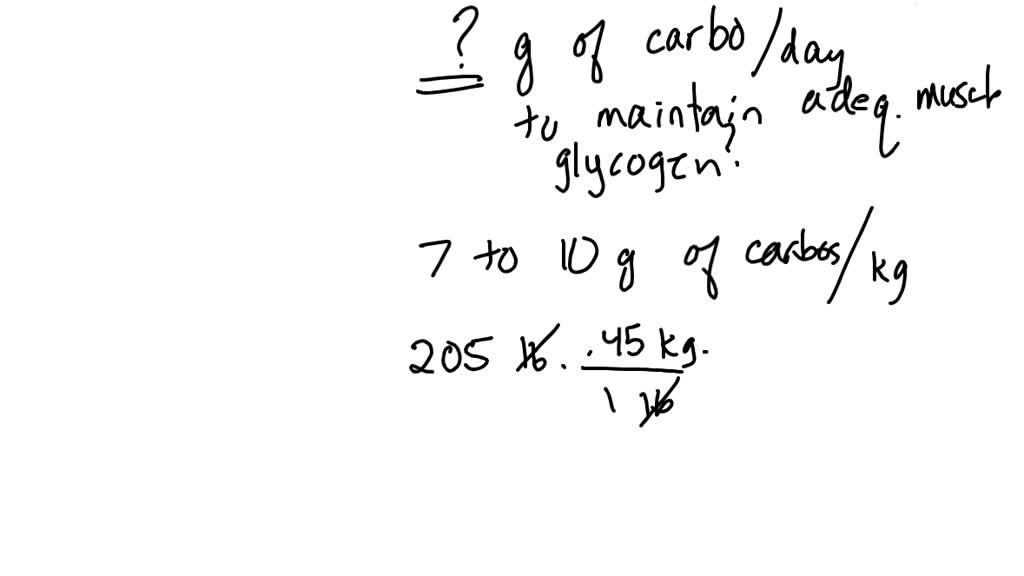 ? g of carbo/day
to maintain adeq. muscle
glycogen?
7 to 10 g of carbos/kg
205 lb . .45 kg.
1 lb